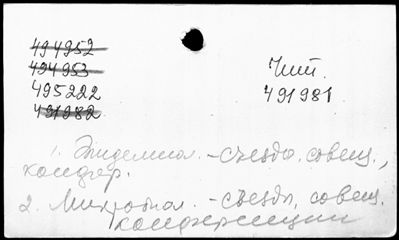 494952
494953
495222
491982
Чит.
491981
1. Эпидемиол. - съезды, совещ.,
конфер.
2. Микробиол. - съезды, совещ.
конференции